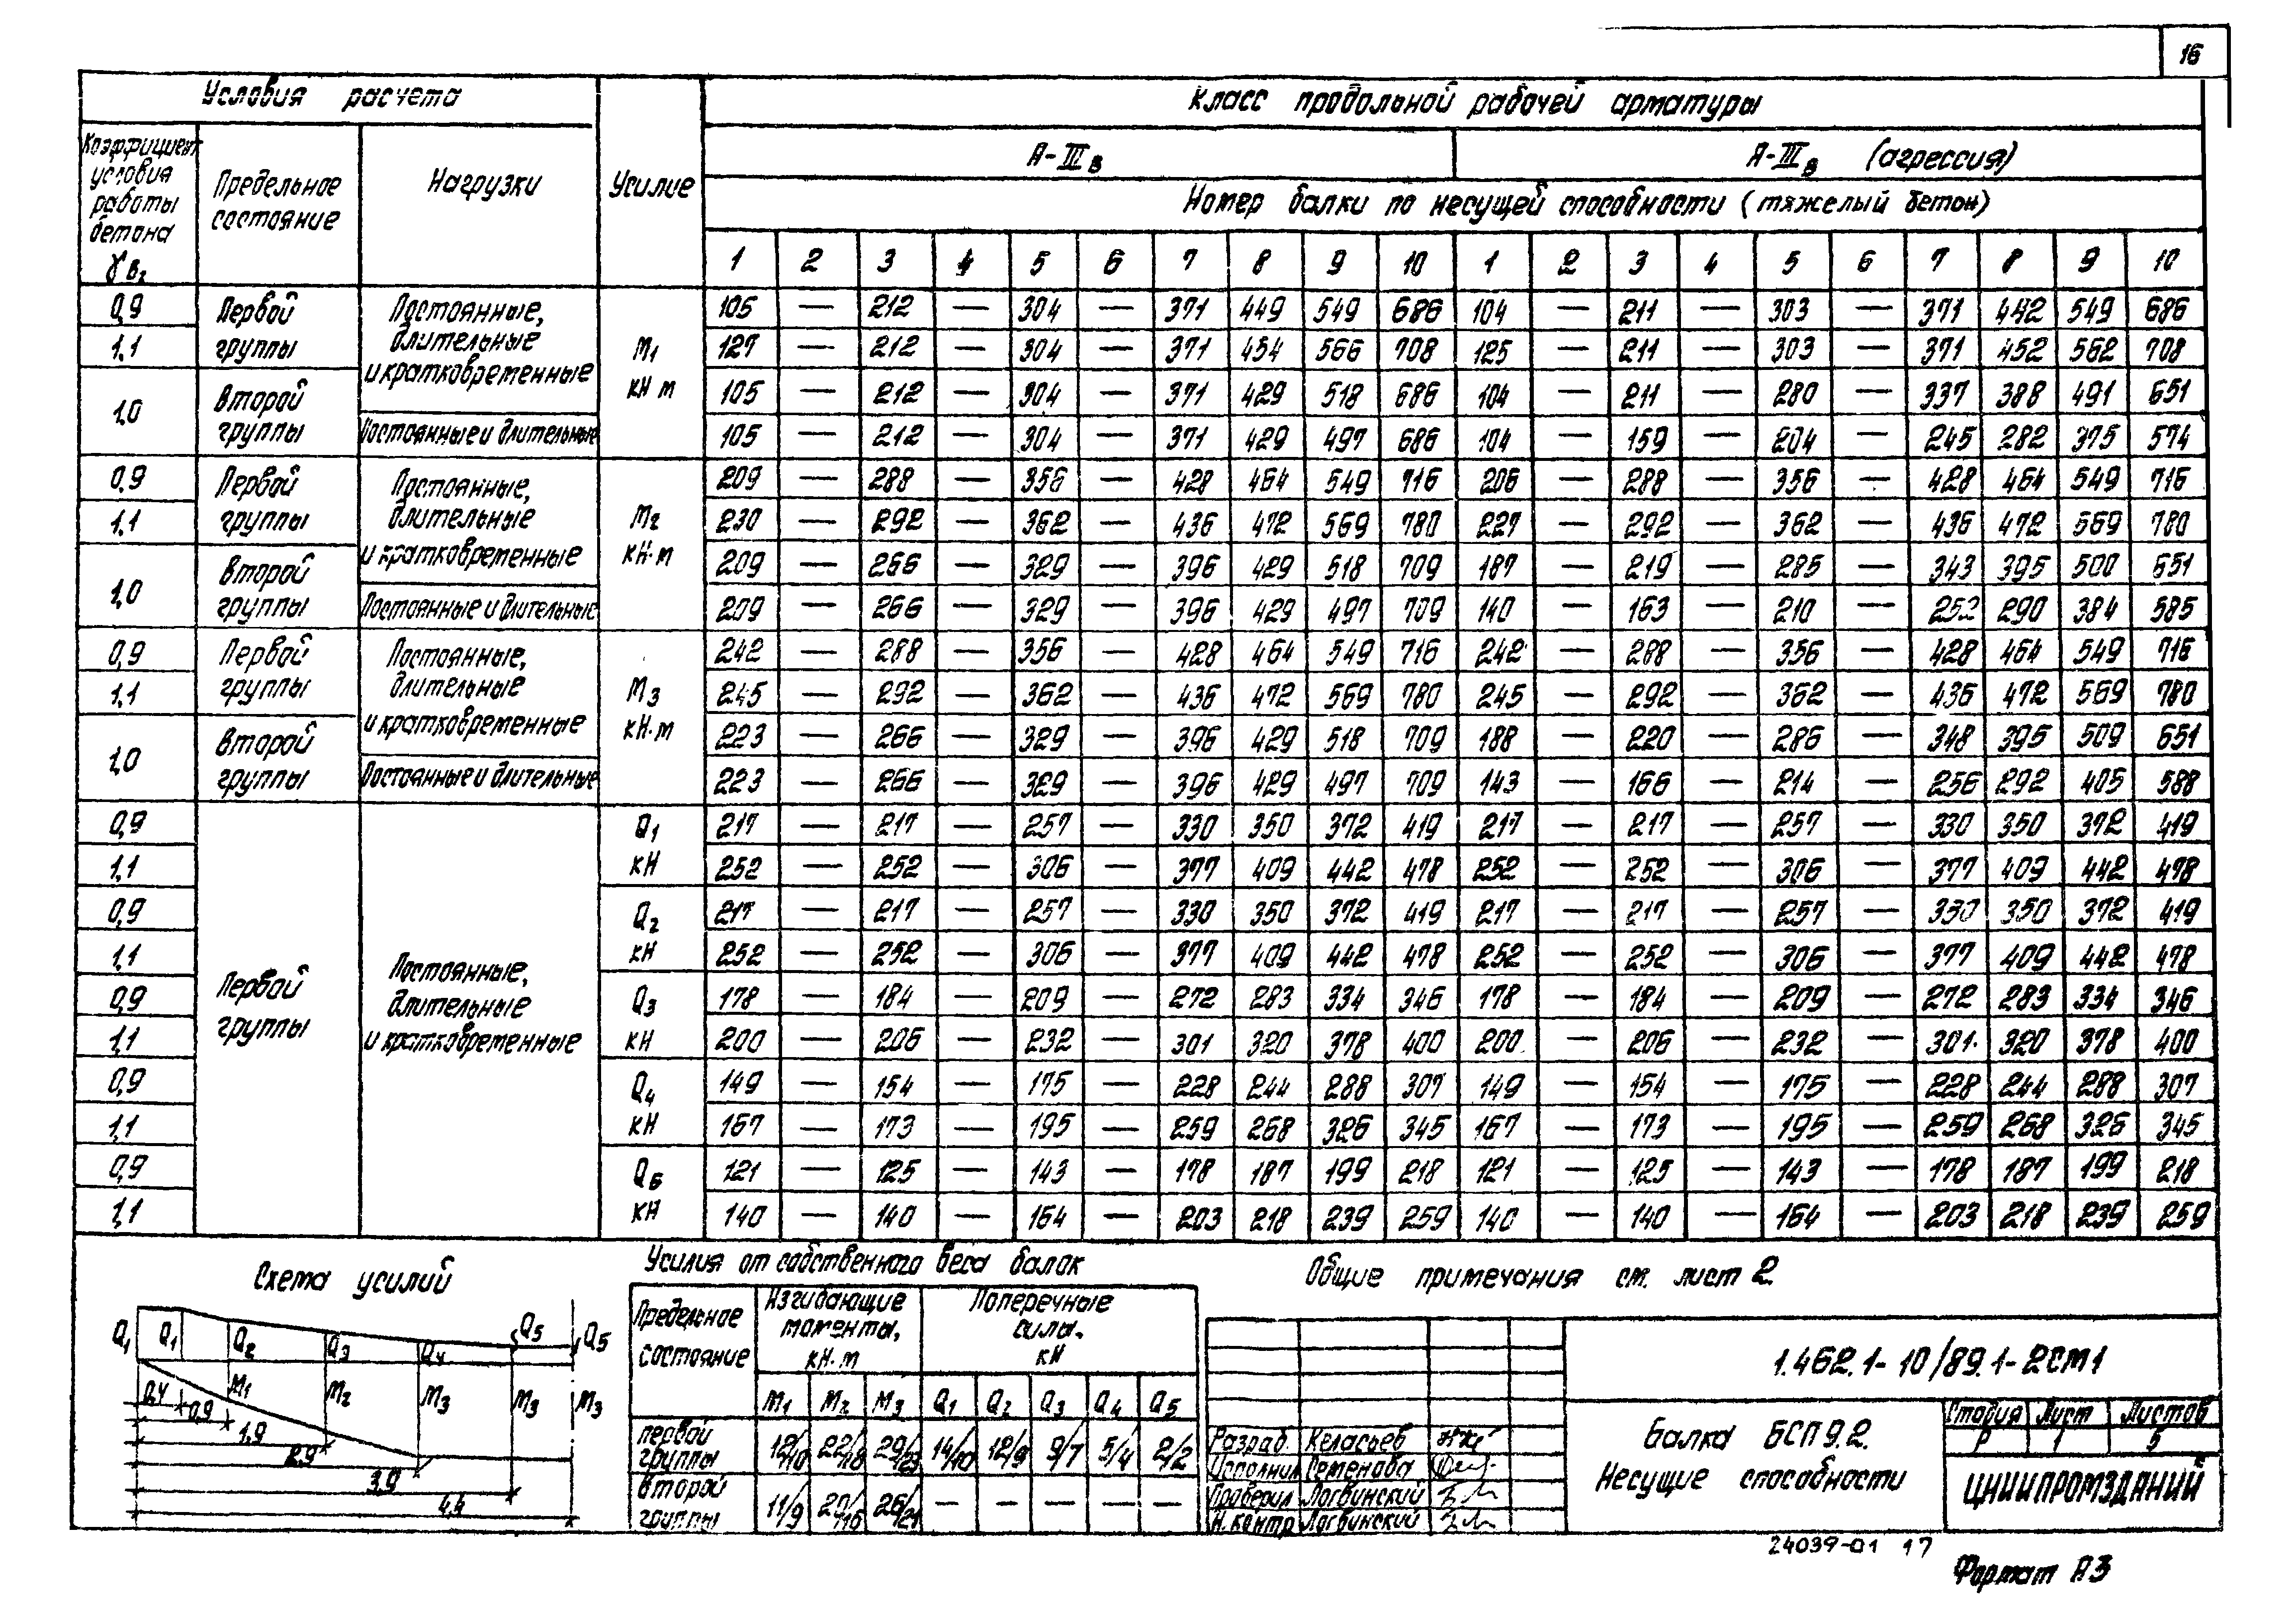 16
Условия расчета
Класс продольной рабочей арматуры
Коэффициент условия работы бетона γв₂
Предельное состояние
Нагрузки
Усилие
А-IIIв
А-IIIв (агрессия)
Номер балки по несущей способности (тяжелый бетон)
1 2 3 4 5 6 7 8 9 10 1 2 3 4 5 6 7 8 9 10
0,9 Первой группы Постоянные, длительные и кратковременные М1 кН м 105 — 212 — 304 — 371 449 549 686 104 — 211 — 303 — 371 442 549 686
1,1 127 — 212 — 304 — 371 454 566 708 125 — 211 — 303 — 371 452 562 708
1,0 Второй группы 105 — 212 — 304 — 371 429 518 686 104 — 211 — 280 — 337 388 491 651
Постоянные и длительные 105 — 212 — 304 — 371 429 497 686 104 — 159 — 204 — 245 282 375 574
0,9 Первой группы Постоянные, длительные и кратковременные М2 кН·м 209 — 288 — 356 — 428 464 549 716 206 — 288 — 356 — 428 464 549 716
1,1 230 — 292 — 362 — 436 472 569 780 227 — 292 — 362 — 436 472 569 780
1,0 Второй группы 209 — 266 — 329 — 396 429 518 709 187 — 219 — 285 — 343 395 500 651
Постоянные и длительные 209 — 266 — 329 — 396 429 497 709 140 — 163 — 210 — 252 290 384 585
0,9 Первой группы Постоянные, длительные и кратковременные М3 кН·м 242 — 288 — 356 — 428 464 549 716 242 — 288 — 356 — 428 464 549 716
1,1 245 — 292 — 362 — 436 472 569 780 245 — 292 — 362 — 436 472 569 780
1,0 Второй группы 223 — 266 — 329 — 396 429 518 709 188 — 220 — 286 — 348 395 509 651
Постоянные и длительные 223 — 266 — 329 — 396 429 497 709 143 — 166 — 214 — 256 292 405 588
0,9 Первой группы Постоянные, длительные и кратковременные Q1 кН 217 — 217 — 257 — 330 350 372 419 217 — 217 — 257 — 330 350 372 419
1,1 252 — 252 — 306 — 377 409 442 478 252 — 252 — 306 — 377 409 442 478
0,9 Q2 кН 217 — 217 — 257 — 330 350 372 419 217 — 217 — 257 — 330 350 372 419
1,1 252 — 252 — 306 — 377 409 442 478 252 — 252 — 306 — 377 409 442 478
0,9 Q3 кН 178 — 184 — 209 — 272 283 334 346 178 — 184 — 209 — 272 283 334 346
1,1 200 — 206 — 232 — 301 320 378 400 200 — 206 — 232 — 301 320 378 400
0,9 Q4 кН 149 — 154 — 175 — 228 244 288 307 149 — 154 — 175 — 228 244 288 307
1,1 167 — 173 — 195 — 259 268 326 345 167 — 173 — 195 — 259 268 326 345
0,9 Q5 кН 121 — 125 — 143 — 178 187 199 218 121 — 125 — 143 — 178 187 199 218
1,1 140 — 140 — 164 — 203 218 239 259 140 — 140 — 164 — 203 218 239 259
Схема усилий
Q1 Q1 Q2 Q3 Q4 Q5 Q5
М1 М2 М3 М3 М3
0,4
0,9
1,9
2,9
3,9
4,4
Усилия от собственного веса балок
Предельное состояние
Изгибающие моменты, кН·м
Поперечные силы, кН
М1 М2 М3 Q1 Q2 Q3 Q4 Q5
первой группы 12/10 22/18 29/23 14/10 12/9 9/7 5/4 2/2
второй группы 11/9 20/16 26/21 — — — — —
Общие примечания см. лист 2
1.462.1-10/89.1-2СМ1
Разраб. Келасьев
Исполнил Семенова
Проверил Логвинский
Н. контр. Логвинский
Балка БСП 9.2.
Несущие способности
Стадия Лист Листов
Р 1 5
ЦНИИПРОМЗДАНИЙ
24039-01 17
Формат А3